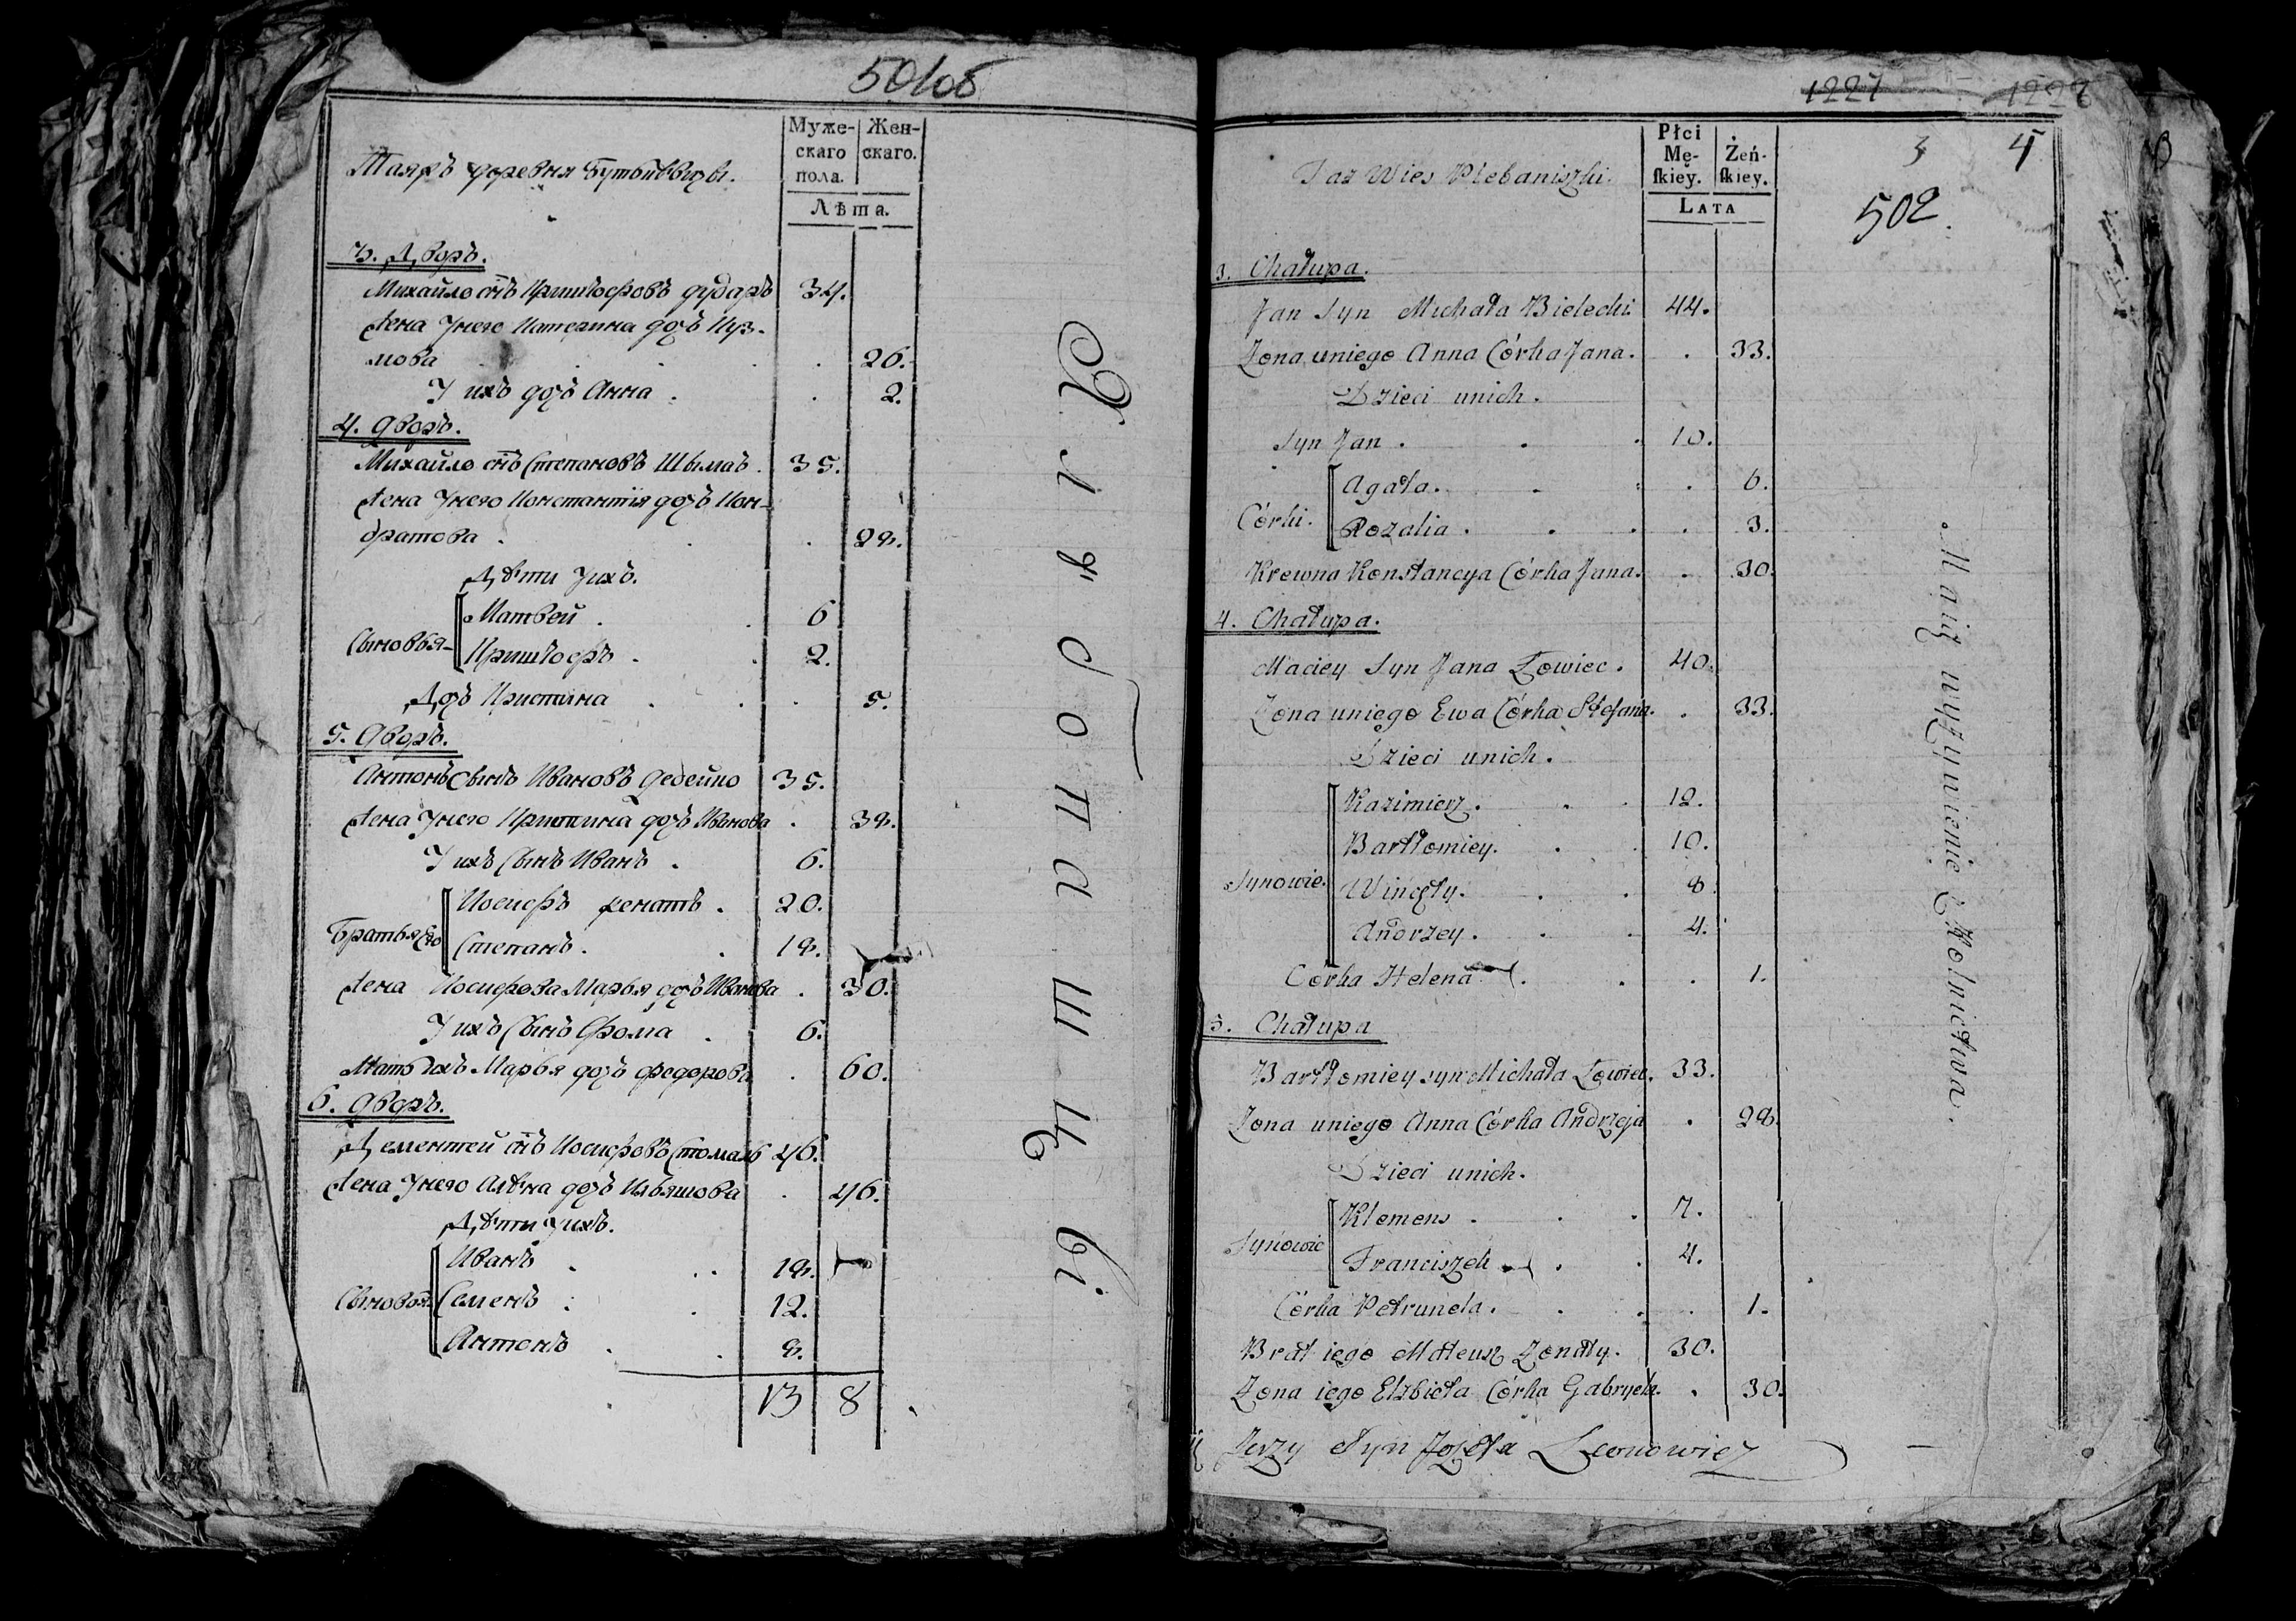 501об
Таяжъ деревня Бутывилзы.
Муже-
скаго
пола.
Жен-
скаго.
Лѣта.
3. Дворъ.
Михайло снъ Криштофовъ дударъ 34.
Жена Унего Катерина дочъ Куз-
мова . . . 26.
У ихъ дочъ Анна . . 2.
4. дворъ.
Михайло снъ Степановъ Шымаъ . 35.
Жена Унего Константія дочъ Кон-
дратова . . . 28.
Дѣти Уихъ.
Сыновья
Матвей . . 6
Криштофъ . . 2.
Дочъ Кристина . . . 5.
5. дворъ.
Антонъ Сынъ Ивановъ дедейко 35.
Жена Унего Кристина дочъ Иванова . 38.
У ихъ Сынъ Иванъ . 6.
Братья его
Иосифъ женатъ . 20.
Степанъ . . 18.
Жена Иосифова Марья дочъ Иванова . 30.
У ихъ Сынъ Фома . 6.
Мать ихъ Марья дочъ федорова . 60.
6. дворъ.
Дементей снъ Иосифовъ 46.
Жена Унего Алѣна дочъ Ильяшова . 46.
Дѣти Уихъ.
Сыновья
Иванъ . . . 18.
Семенъ . . 12.
Антонъ . . 8.
13 8
1227 1228
3 4
502.
Taż Wies Plebaniszki.
Płci
Mę-
skiey.
Żeń-
skiey.
LATA
3. Chałupa.
Jan Syn Michała Bielecki 44.
Żona uniego Anna Córka Jana. . 33.
Dzieci unich.
Syn Jan . . . 10.
Córki.
Agata. . . . 6.
Rozalia . . . . 3.
Krewna Konstancya Córka Jana. . 30.
4. Chałupa.
Maciey Syn Jana Łowiec . 40.
Żona uniego Ewa Córka Stefana. . 33.
Dzieci unich.
Synowie.
Kazimierz . . . 12.
Bartłomiey. . . 10.
Wincęty. . . 8.
Andrzey . . . 4.
Córka Helena . . . 1.
5. Chałupa
Bartłomiey syn Michała Łowiec. 33.
Żona uniego Anna Córka Andrzeja . 28.
Dzieci unich.
Synowie
Klemens . . . 7.
Franciszek . . . 4.
Córka Petrunela . . . . 1.
Brat iego Mateusz Żonaty. 30.
Żona iego Elżbieta Córka Gabryela. . 30.
Jerzy Syn Jozefa Leonowicz
Maią wyżywienie z Rolnictwa.